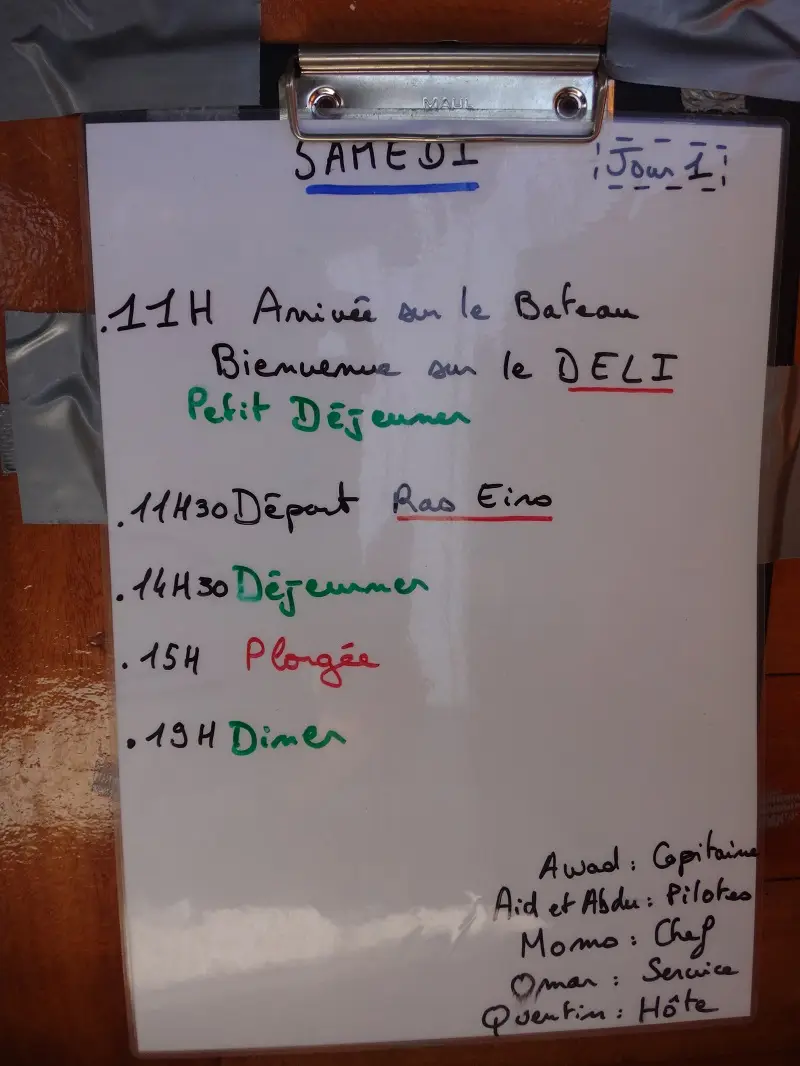 MAUL
SAMEDI
Jour 1
.11H Arrivée sur le Bateau
Bienvenue sur le DELI
Petit Déjeuner
.11H30 Départ Ras Eiro
.14H30 Déjeuner
.15H Plongée
.19H Diner
Awad : Capitaine
Aid et Abdu : Pilotes
Momo : Chef
Omar : Service
Quentin : Hôte